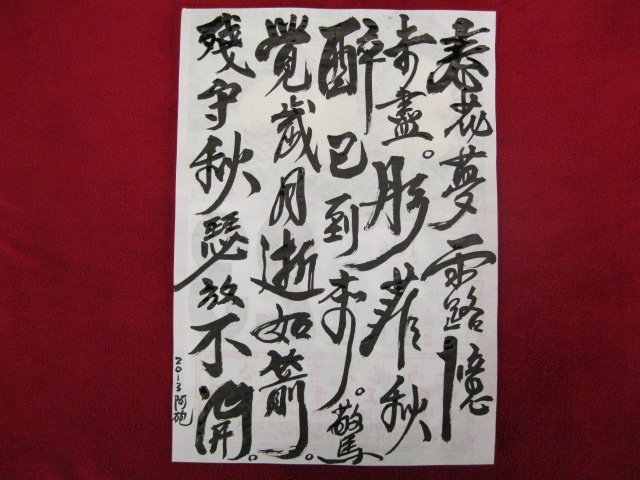 春花夢露憶
未盡。彤菲秋
醉已到來。驚
覺歲月逝如箭。
殘守秋瑟放不開。
2013阿砲